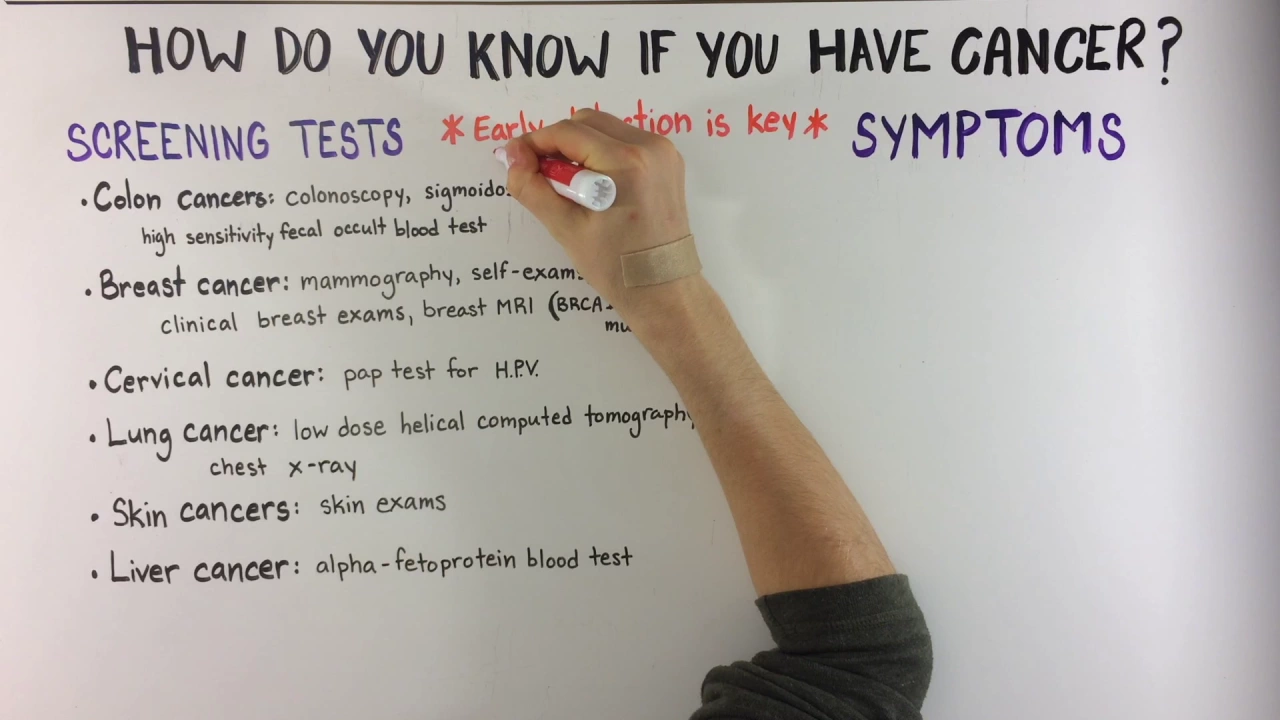 HOW DO YOU KNOW IF YOU HAVE CANCER?
SCREENING TESTS
*Early is key*
SYMPTOMS
• Colon cancers: colonoscopy,
high sensitivity fecal occult blood test
• Breast cancer: mammography, self-exams
clinical breast exams, breast MRI (BRCA
• Cervical cancer: pap test for H.P.V.
• Lung cancer: low dose helical computed tomography
chest x-ray
• Skin cancers: skin exams
• Liver cancer: alpha-fetoprotein blood test